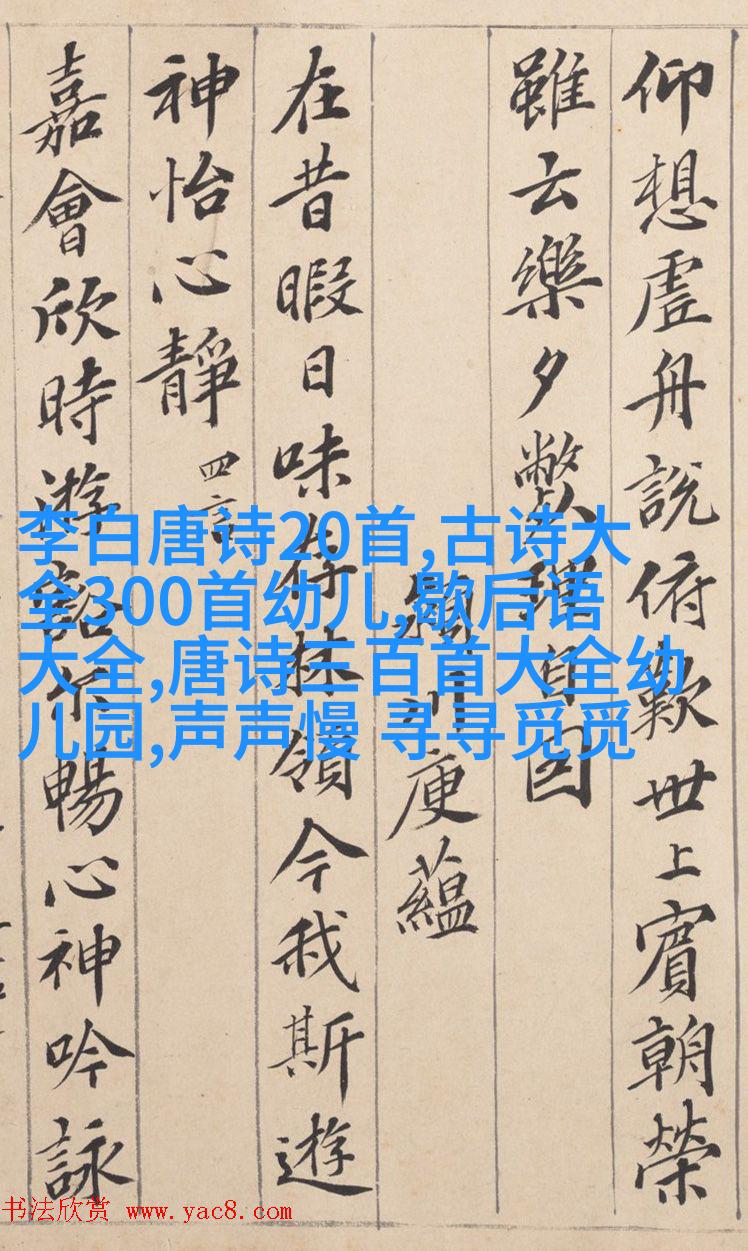 仰想虛舟說俯歎世上賓朝榮
雖云樂夕斃理自因
潁川庾蘊
在昔暇日味存林嶺今我斯遊
神怡心靜 四言
嘉會欣時游豁尒暢心神吟詠
李白唐诗20首,古诗大
全300首幼儿,歇后语
大全,唐诗三百首大全幼
儿园,声声慢 寻寻觅觅
书法欣赏 www.yac8.com